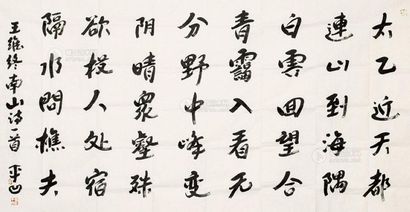 太乙近天都
連山到海隅
白雲回望合
青靄入看无
分野中峰变
阴晴衆壑殊
欲投人处宿
隔水問樵夫
王维终南山诗一首